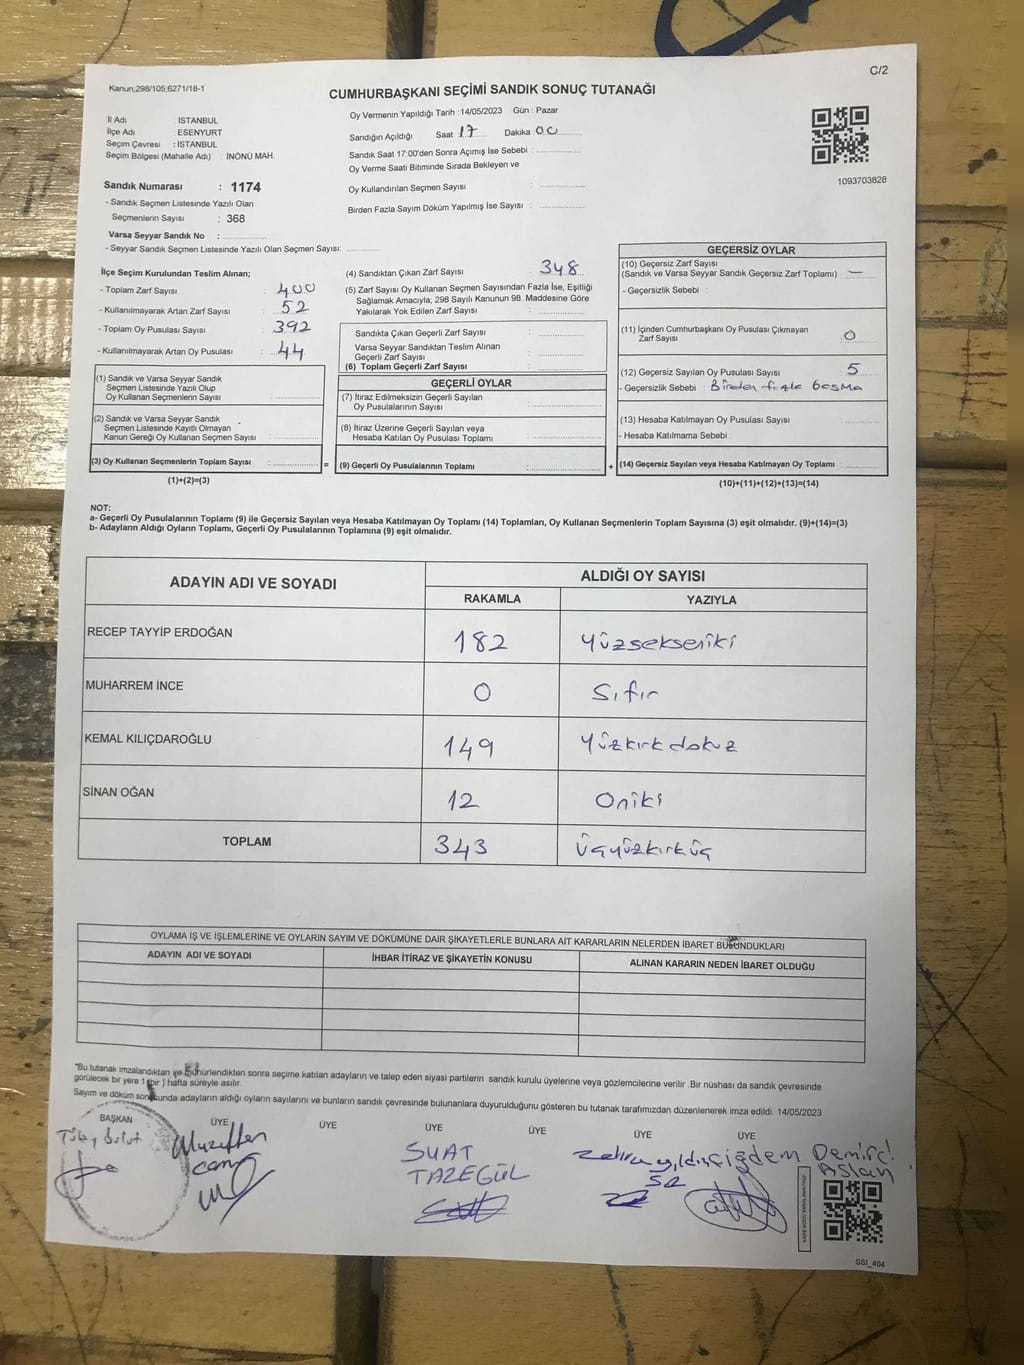 C/2
Kanun,298/105;6271/18-1
CUMHURBAŞKANI SEÇİMİ SANDIK SONUÇ TUTANAĞI
İl Adı : İSTANBUL
İlçe Adı : ESENYURT
Seçim Çevresi : İSTANBUL
Seçim Bölgesi (Mahalle Adı) : İNÖNÜ MAH.
Oy Vermenin Yapıldığı Tarih : 14/05/2023 Gün : Pazar
Sandığın Açıldığı Saat 17 Dakika 00
Sandık Saat 17:00'den Sonra Açımış İse Sebebi :
Oy Verme Saati Bitiminde Sırada Bekleyen ve
Oy Kullandırılan Seçmen Sayısı :
Birden Fazla Sayım Döküm Yapılmış İse Sayısı :
1093703828
Sandık Numarası : 1174
- Sandık Seçmen Listesinde Yazılı Olan
Seçmenlerin Sayısı : 368
Varsa Seyyar Sandık No :
- Seyyar Sandık Seçmen Listesinde Yazılı Olan Seçmen Sayısı:
İlçe Seçim Kurulundan Teslim Alınan;
- Toplam Zarf Sayısı : 400
- Kullanılmayarak Artan Zarf Sayısı : 52
- Toplam Oy Pusulası Sayısı : 392
- Kullanılmayarak Artan Oy Pusulası : 44
(1) Sandık ve Varsa Seyyar Sandık
Seçmen Listesinde Yazılı Olup
Oy Kullanan Seçmenlerin Sayısı :
(2) Sandık ve Varsa Seyyar Sandık
Seçmen Listesinde Kayıtlı Olmayan
Kanun Gereği Oy Kullanan Seçmen Sayısı :
(3) Oy Kullanan Seçmenlerin Toplam Sayısı :
(1)+(2)=(3)
(4) Sandıktan Çıkan Zarf Sayısı : 348
(5) Zarf Sayısı Oy Kullanan Seçmen Sayısından Fazla İse, Eşitliği
Sağlamak Amacıyla; 298 Sayılı Kanunun 98. Maddesine Göre
Yakılarak Yok Edilen Zarf Sayısı :
Sandıkta Çıkan Geçerli Zarf Sayısı :
Varsa Seyyar Sandıktan Teslim Alınan
Geçerli Zarf Sayısı :
(6) Toplam Geçerli Zarf Sayısı :
GEÇERLİ OYLAR
(7) İtiraz Edilmeksizin Geçerli Sayılan
Oy Pusulalarının Sayısı :
(8) İtiraz Üzerine Geçerli Sayılan veya
Hesaba Katılan Oy Pusulası Toplamı :
= (9) Geçerli Oy Pusulalarının Toplamı :
GEÇERSİZ OYLAR
(10) Geçersiz Zarf Sayısı
(Sandık ve Varsa Seyyar Sandık Geçersiz Zarf Toplamı) : —
- Geçersizlik Sebebi :
(11) İçinden Cumhurbaşkanı Oy Pusulası Çıkmayan
Zarf Sayısı : 0
(12) Geçersiz Sayılan Oy Pusulası Sayısı : 5
- Geçersizlik Sebebi : Birden fazla basma
(13) Hesaba Katılmayan Oy Pusulası Sayısı :
- Hesaba Katılmama Sebebi :
+ (14) Geçersiz Sayılan veya Hesaba Katılmayan Oy Toplamı :
(10)+(11)+(12)+(13)=(14)
NOT:
a- Geçerli Oy Pusulalarının Toplamı (9) ile Geçersiz Sayılan veya Hesaba Katılmayan Oy Toplamı (14) Toplamları, Oy Kullanan Seçmenlerin Toplam Sayısına (3) eşit olmalıdır. (9)+(14)=(3)
b- Adayların Aldığı Oyların Toplamı, Geçerli Oy Pusulalarının Toplamına (9) eşit olmalıdır.
ADAYIN ADI VE SOYADI
ALDIĞI OY SAYISI
RAKAMLA YAZIYLA
RECEP TAYYİP ERDOĞAN 182 Yüzsekseniki
MUHARREM İNCE 0 Sıfır
KEMAL KILIÇDAROĞLU 149 Yüzkırkdokuz
SİNAN OĞAN 12 Oniki
TOPLAM 343 üçyüzkırküç
OYLAMA İŞ VE İŞLEMLERİNE VE OYLARIN SAYIM VE DÖKÜMÜNE DAİR ŞİKAYETLERLE BUNLARA AİT KARARLARIN NELERDEN İBARET BULUNDUKLARI
ADAYIN ADI VE SOYADI İHBAR İTİRAZ VE ŞİKAYETİN KONUSU ALINAN KARARIN NEDEN İBARET OLDUĞU
"Bu tutanak imzalandıktan ve mühürlendikten sonra seçime katılan adayların ve talep eden siyasi partilerin sandık kurulu üyelerine veya gözlemcilerine verilir .Bir nüshası da sandık çevresinde
görülecek bir yere 1 (bir ) hafta süreyle asılır.
Sayım ve döküm sonucunda adayların aldığı oyların sayılarını ve bunların sandık çevresinde bulunanlara duyurulduğunu gösteren bu tutanak tarafımızdan düzenlenerek imza edildi. 14/05/2023
BAŞKAN ÜYE ÜYE ÜYE ÜYE ÜYE ÜYE
bulut
Muzaffer
SUAT
TAZEGÜL
Çiğdem Demirci
Aslan
SSI_404